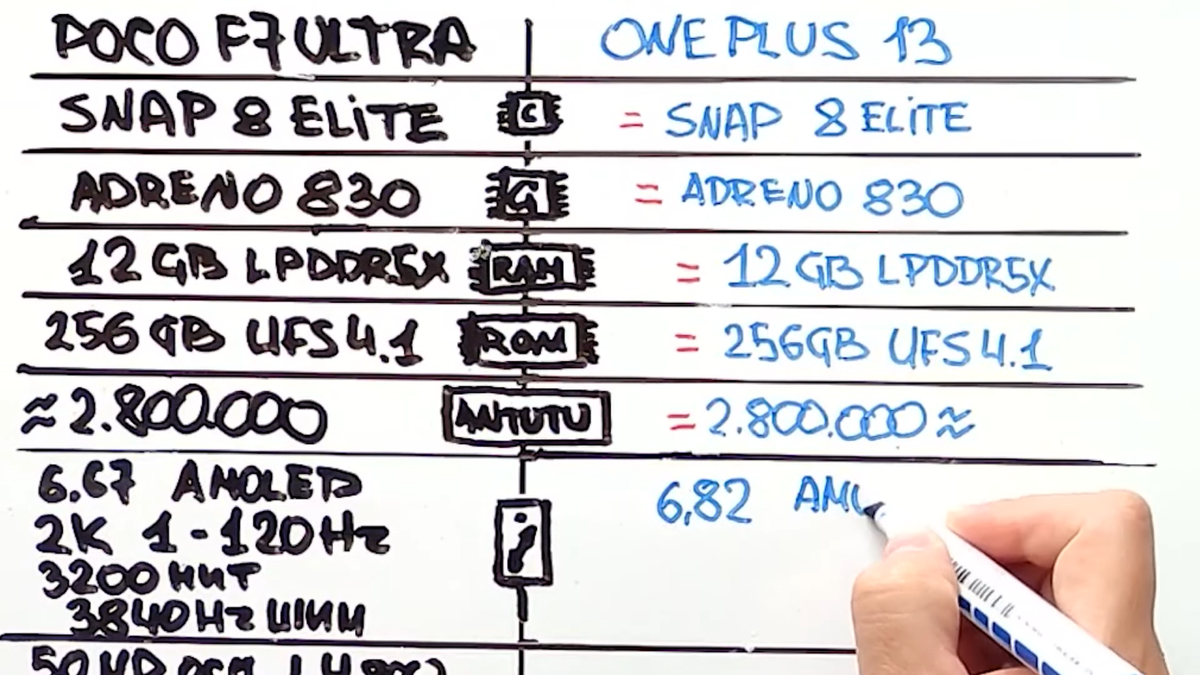 POCO F7 ULTRA ONEPLUS 13
SNAP 8 ELiTE C = SNAP 8 ELiTE
ADRENO 830 G = ADRENO 830
12 GB LPDDR5X RAM = 12 GB LPDDR5X
256 GB UFS 4.1 ROM = 256GB UFS 4.1
≈ 2.800.000 ANTUTU = 2.800.000 ≈
6.67 AMOLED 6,82 AM
2K 1-120 Hz
3200 НИТ
3840 Hz ШИМ
50 MP